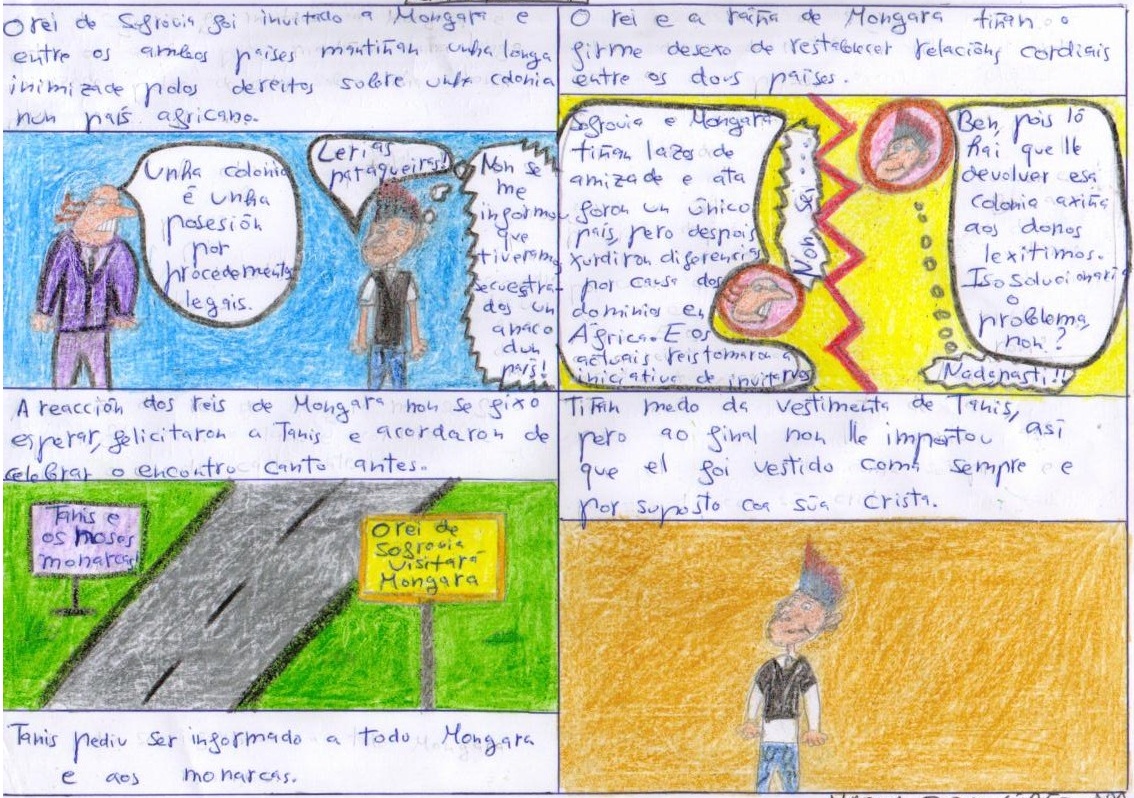 O rei de Sogrovia foi invitado a Mongara e
entre os ambos países mantiñan unha longa
inimizade polos dereitos sobre unha colonia
nun país africano.
Unha colonia
é unha
posesión
por
procedemento
legais.
Lerias
pataqueiras!
Non se
me
informou
que
tiveramos
secuestra-
dos un
anaco
dun
país!
O rei e a raíña de Mongara tiñan o
firme desexo de restablecer relacións cordiais
entre os dous países.
Sogrovia e Mongara
tiñan lazos de
amizade e ata
foron un único
país, pero despois
xurdiron diferencias
por causa dos
dominios en
África. E os
actuais reis tomaron a
iniciativa de invitarvos
Non sei...
Ben, pois ló
hai que lle
devolver esa
colonia axiña
aos donos
lexítimos.
Iso solucionaría
o
problema,
non?
Nodapasti!!
A reacción dos reis de Mongara non se fixo
esperar, felicitaron a Tanis e acordaron de
celebrar o encontro canto antes.
Tanis e
os nosos
monarcas!
O rei de
Sogrovia
visitará
Mongara
Tanis pediu ser informado a todo Mongara
e aos monarcas.
Tiñan medo da vestimenta de Tanis,
pero ao final non lle importou, así
que el foi vestido coma sempre e
por suposto coa súa crista.